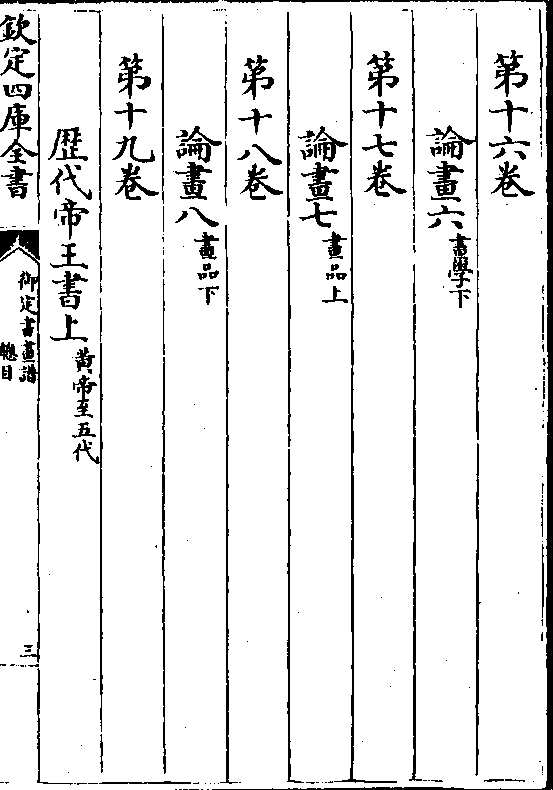 第十六卷
論畫六畫學下
第十七卷
論畫七畫品上
第十八卷
論畫八畫品下
第十九卷
歴代帝王書上黃帝至五代
欽定四庫全書
御定書畫譜
總目
三